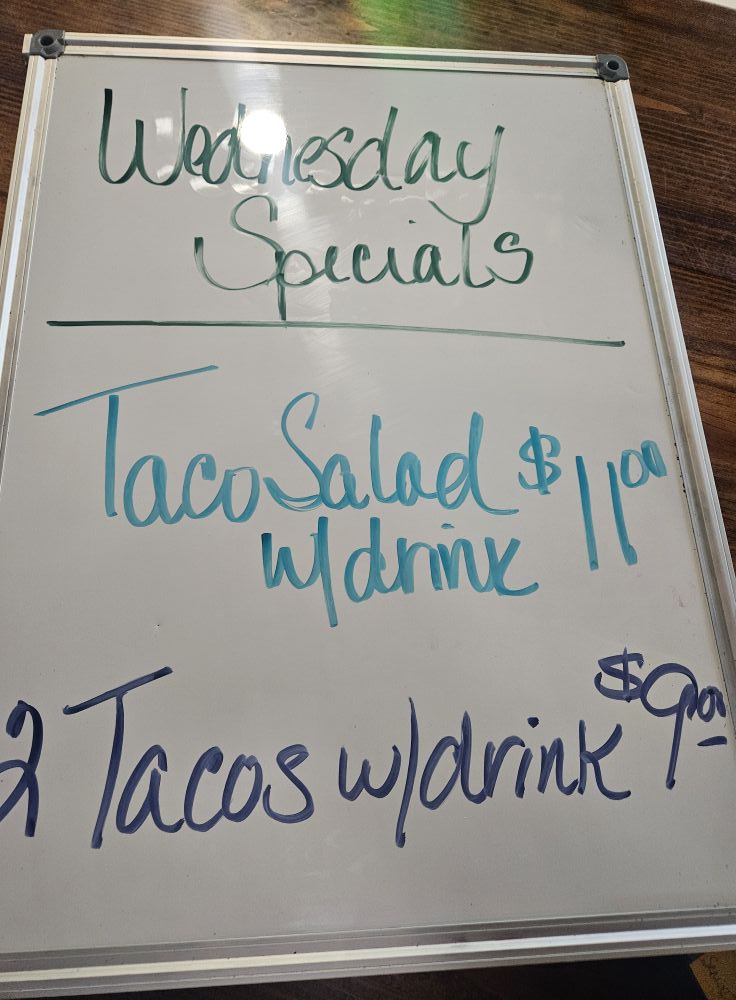 Wednesday
Specials
Taco Salad $11.00
w/drink
2 Tacos w/drink $9.00